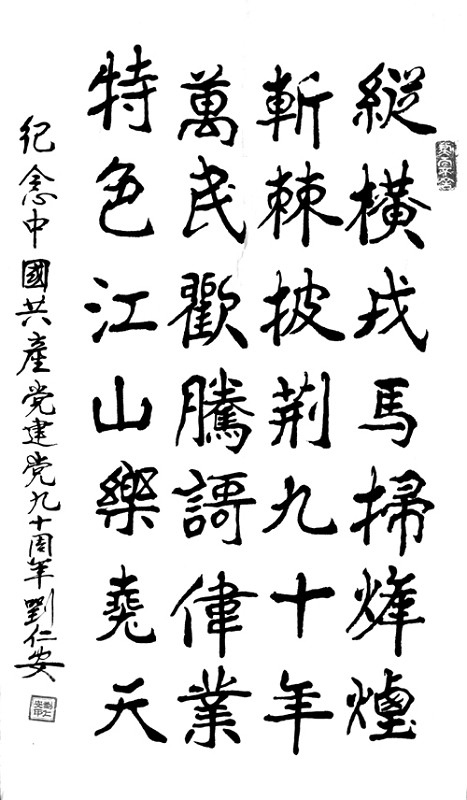 縱橫戎馬掃烽煙
斬棘披荆九十年
萬民歡騰謌偉業
特色江山樂堯天
紀念中國共產党建党九十周年劉仁安